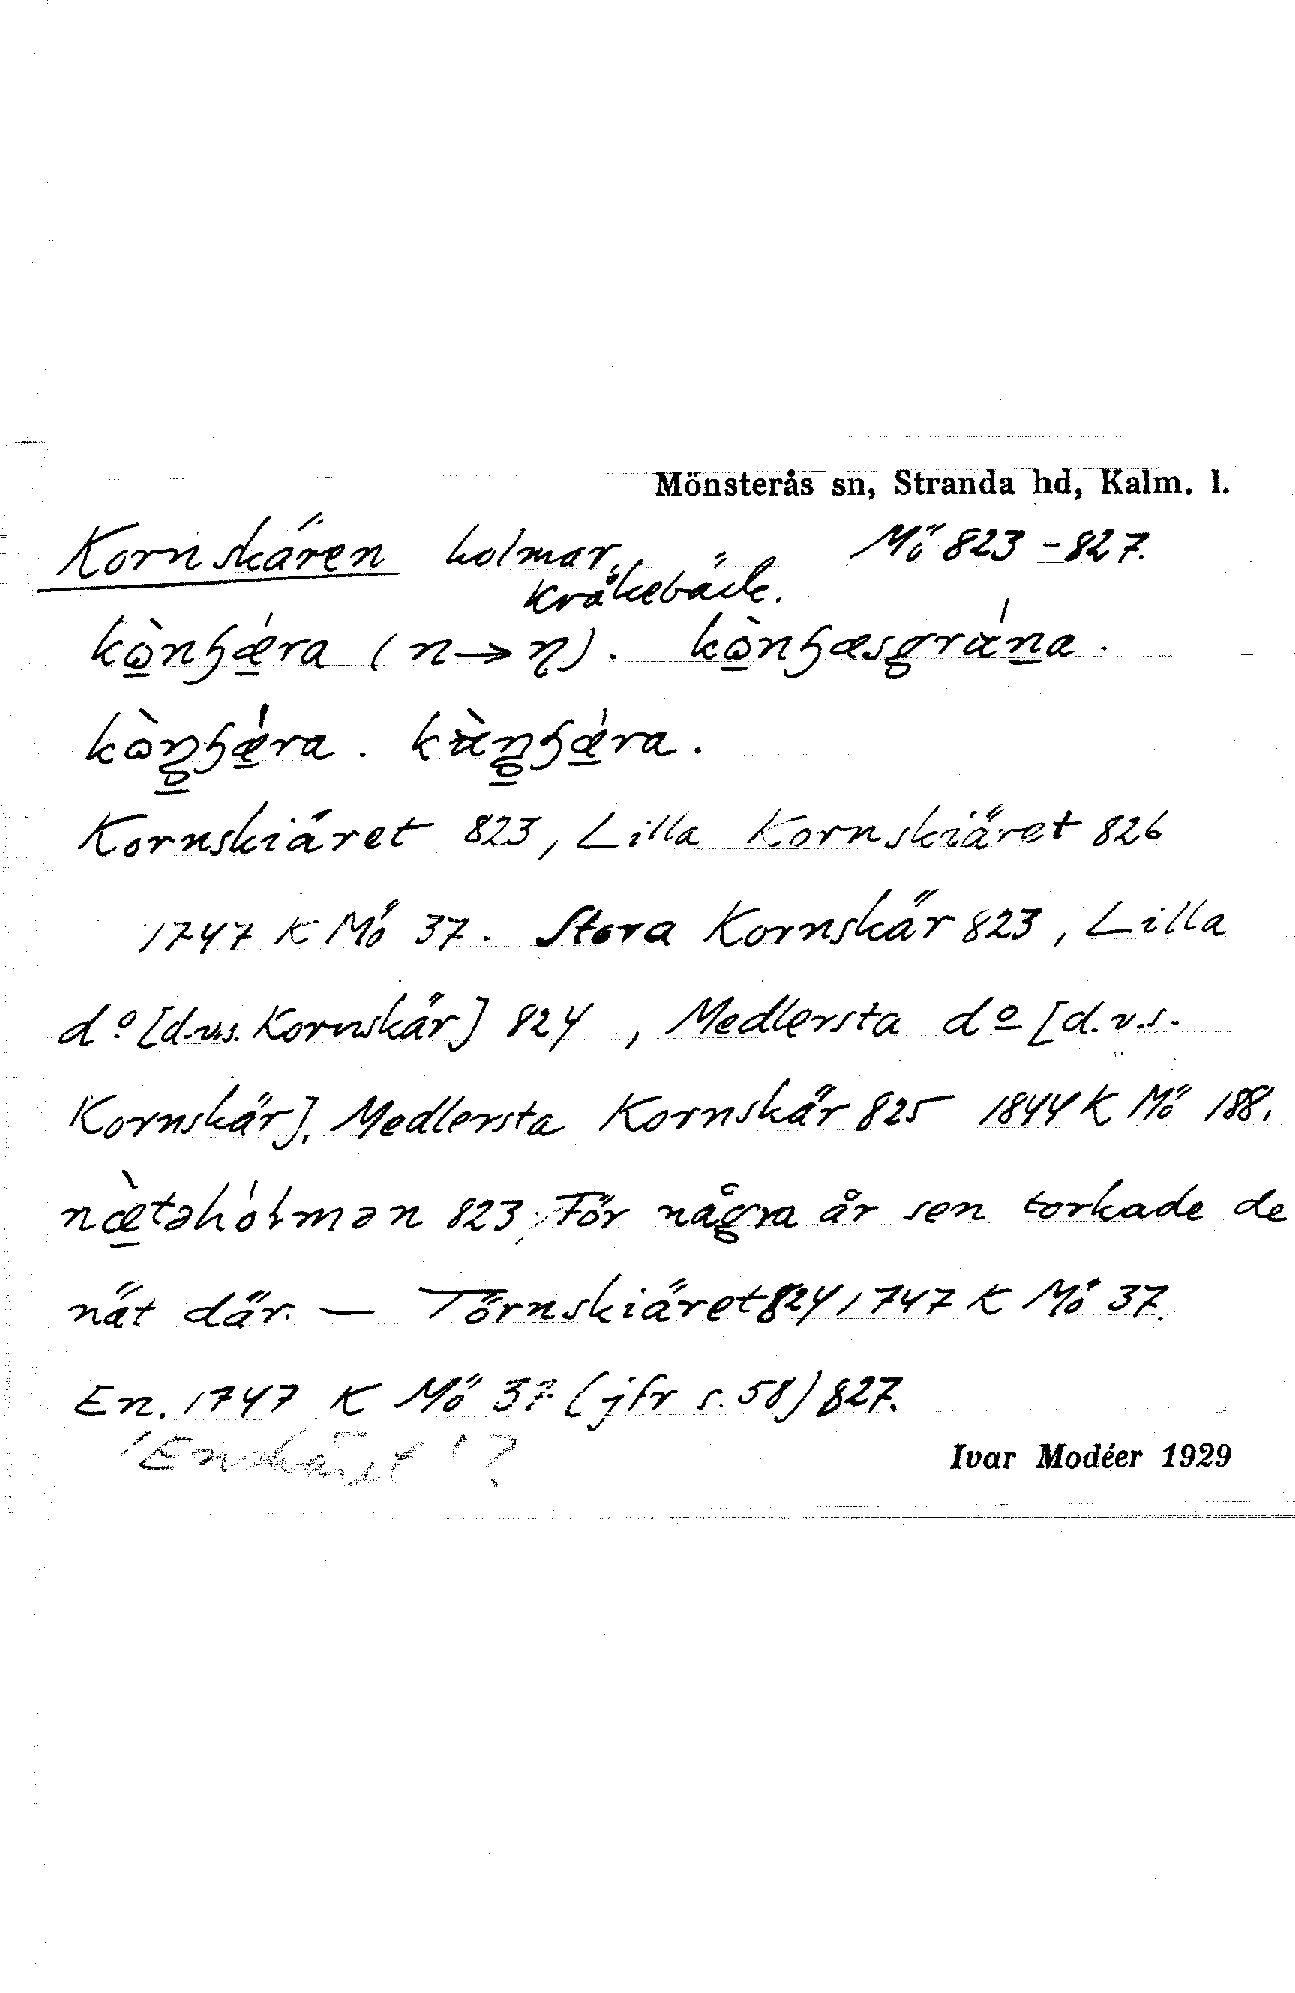 Mönsterås sn, Stranda hd, Kalm. l.
Kornskären holmar, Mö 823-827.
Kråkebäck.
kὼnɧǽra (n→ŋ). kὼnɧæsgrána.
kὼŋɧǽra. kàŋɧǽra.
Kornskiäret 823, Lilla Kornskiäret 826
1747 K Mö 37. Stora Kornskär 823, Lilla
do [d.v.s. Kornskär] 824, Medlersta do [d.v.s.
Kornskär]. Medlersta Kornskär 825 1844 K Mö 188.
næ̀təhólmən 823, För några år sen torkade de
nät där. — Törnskiäret 824 1747 K Mö 37.
En. 1747 K Mö 37 (jfr s. 58) 827.
'Enskäret'?
Ivar Modéer 1929